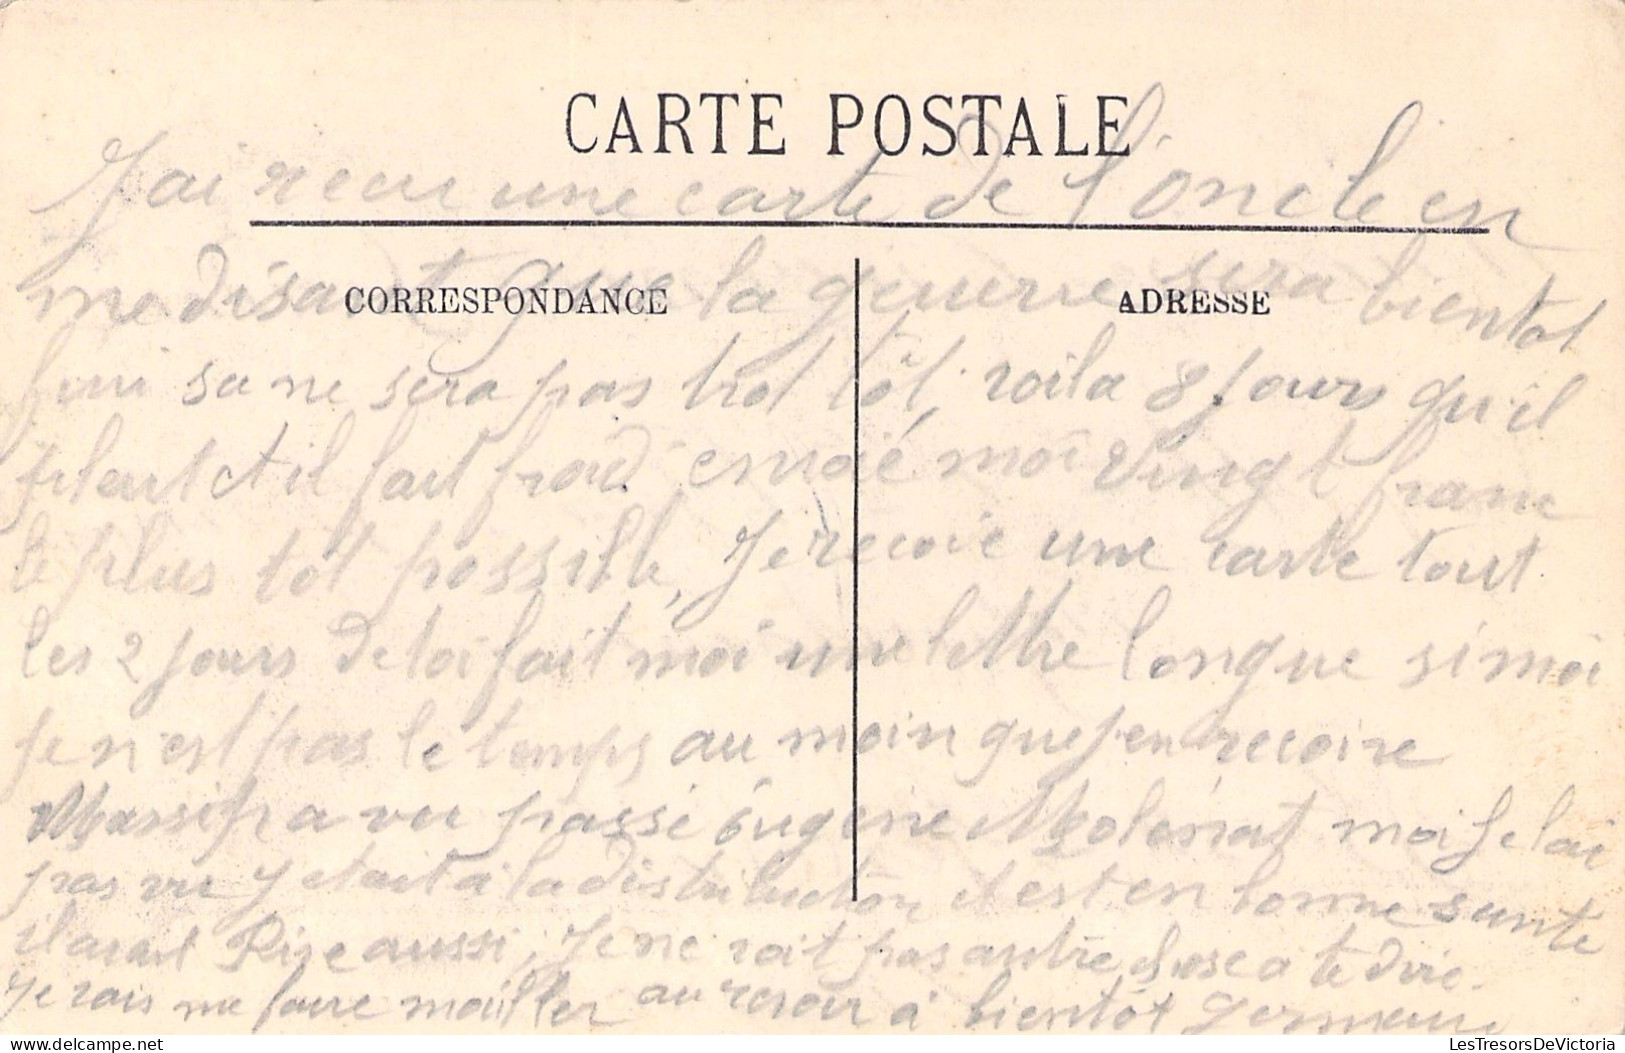 CARTE POSTALE
J'ai recu une carte de l'oncle en
CORRESPONDANCE
ADRESSE
me disant que la guerre sera bientot
fini sa ne sera pas trot tôt, voila 8 jours qu'il
pleut et il fait froid envoié moi vingt franc
le plus tôt possible, Je recoie une carte tout
les 2 jours de toi fait moi une lettre longue si moi
je n'est pas le temps au moin que j'en recoive
Massip a vu passé Eugène moi je lai
pas vu j etait a la distribution il est en bonne sante
il avait aussi, Je ne voit pas autre chose a te dire.
Je vais me faire mouiller au revoir à bientôt Germain
LesTresorsDeVictoria